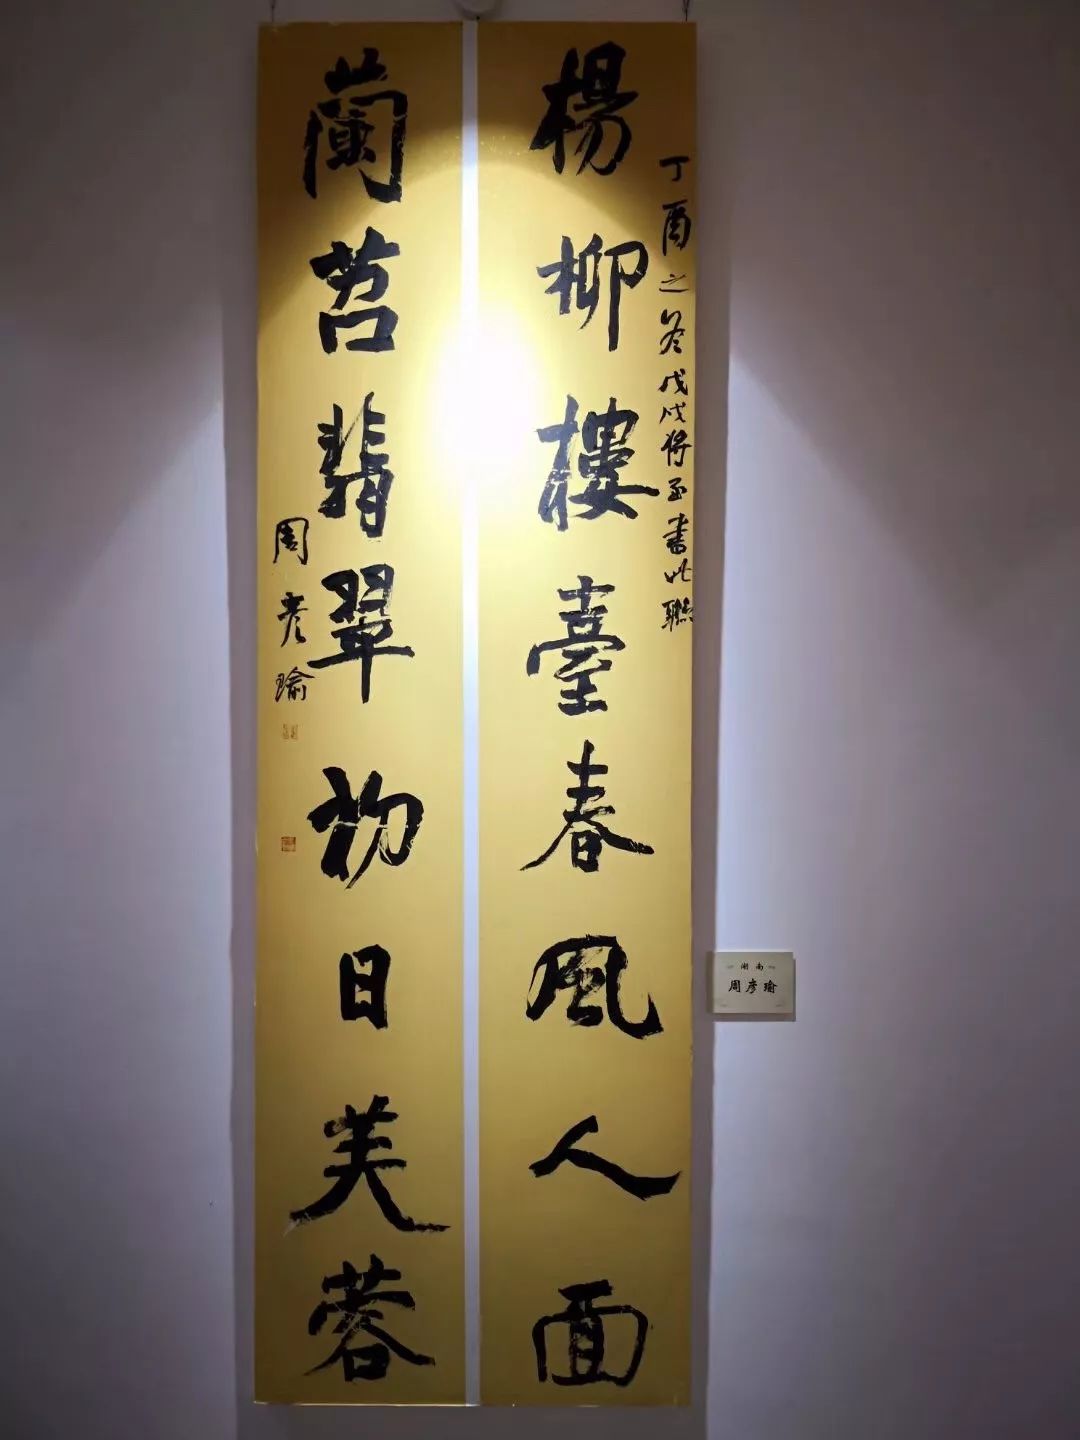 丁酉之冬戊戌將至書此聯
楊柳樓臺春風人面
蘭苕翡翠初日芙蓉
周彥瑜
湖南
周彦瑜